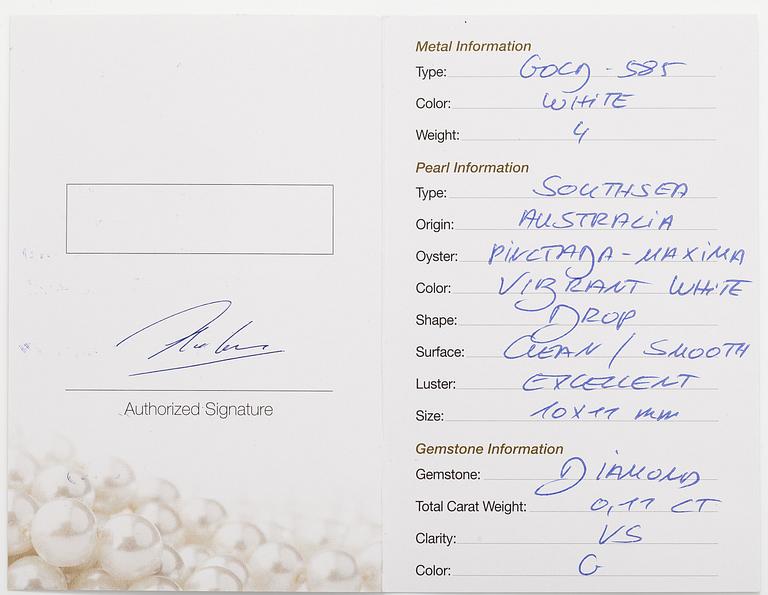 Authorized Signature
Metal Information
Type: GOLD - 585
Color: WHITE
Weight: 4
Pearl Information
Type: SOUTHSEA
Origin: AUSTRALIA
Oyster: PINCTADA - MAXIMA
Color: VIBRANT WHITE
Shape: DROP
Surface: CLEAN / SMOOTH
Luster: EXCELLENT
Size: 10x11 mm
Gemstone Information
Gemstone: DIAMOND
Total Carat Weight: 0,11 CT
Clarity: VS
Color: G